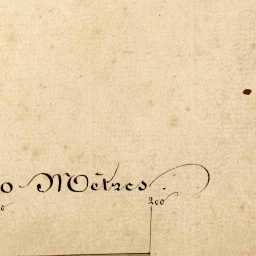 0 Mètres.
0 200